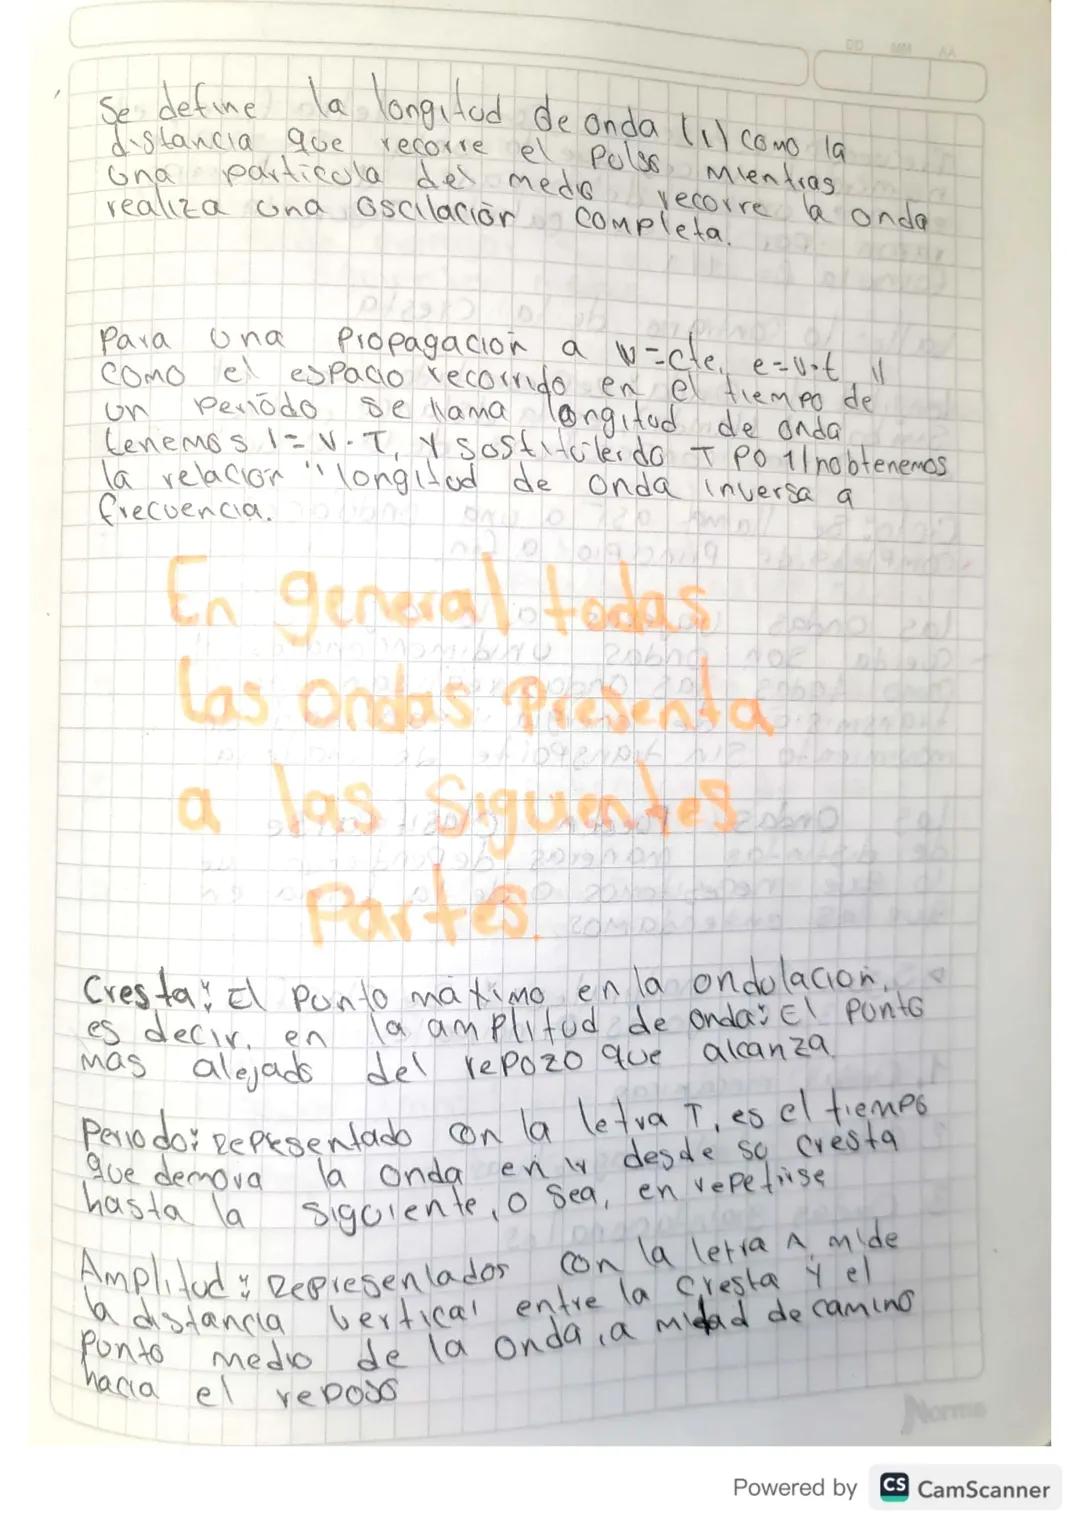 DD MM AA
Se define la longitud de onda (l) como la
distancia que recorre el Pulso Mientras
una particula del medio recorre la onda
realiza una oscilación completa.
Para una Propagación a v=cte, e=v·t y
como el espacio recorrido en el tiempo de
un periódo se llama longitud de onda
tenemos l= v·T, y sostitúlerdo T Po 1/nobtenemos
la relación "longitud de onda inversa a
frecuencia.
En general todas
las ondas Presenta
a las siguientes
Partes.
Cresta: El Punto máximo en la ondulación,
es decir, en la amplitud de onda: El Punto
mas alejado del repozo que alcanza
Periodo: Representado con la letra T, es el tiempo
que demora la onda en ir desde su cresta
hasta la siguiente, o sea, en repetirse
Amplitud: Representados con la letra A mide
la distancia vertical entre la cresta y el
Punto medio de la onda, a mitad de camino
hacia el reposo
Norma
Powered by CS CamScanner